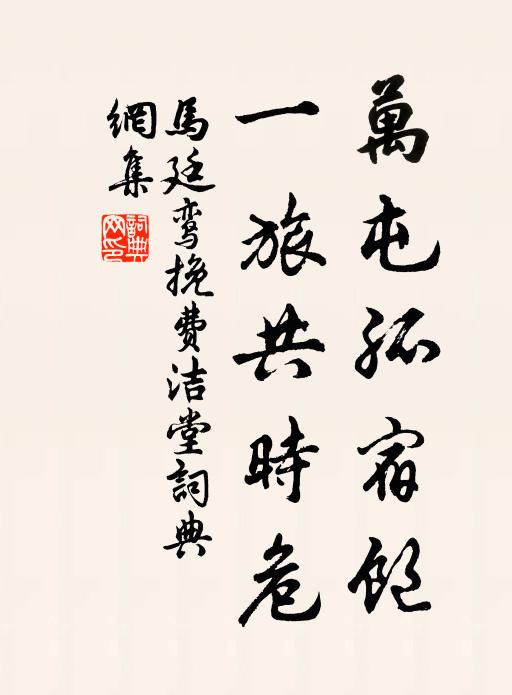 萬屯孤宿飽
一旅共時危
馬廷鸾挽費洁堂詞典
網集
詞典
网印